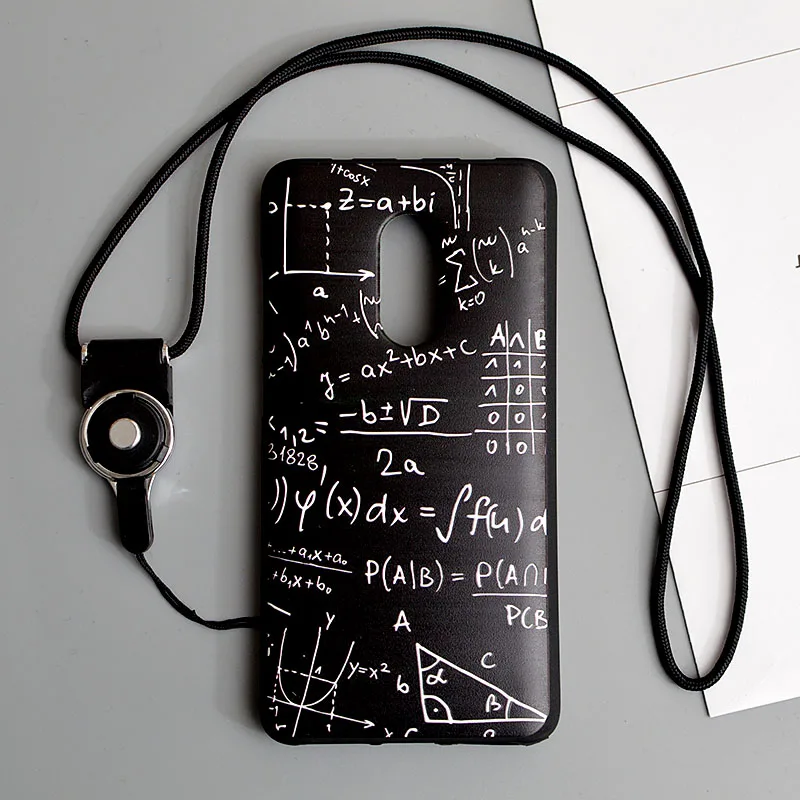 1+cosx
Z=a+bi
a
n
∑ (n k) a^n-k
k=0
a^1 b^n-1 +
y = ax²+bx+c
A ∧ B
1 1 1
1 0
0 0
0 0
1,2 = -b±√D
2a
31828,
))φ'(x)dx = ∫f(u)d
...+a₁x+a₀
+b₁x+b₀
P(A|B) = P(A∩
P(B
A
y
1
y=x²
b
α
c
β
1
x